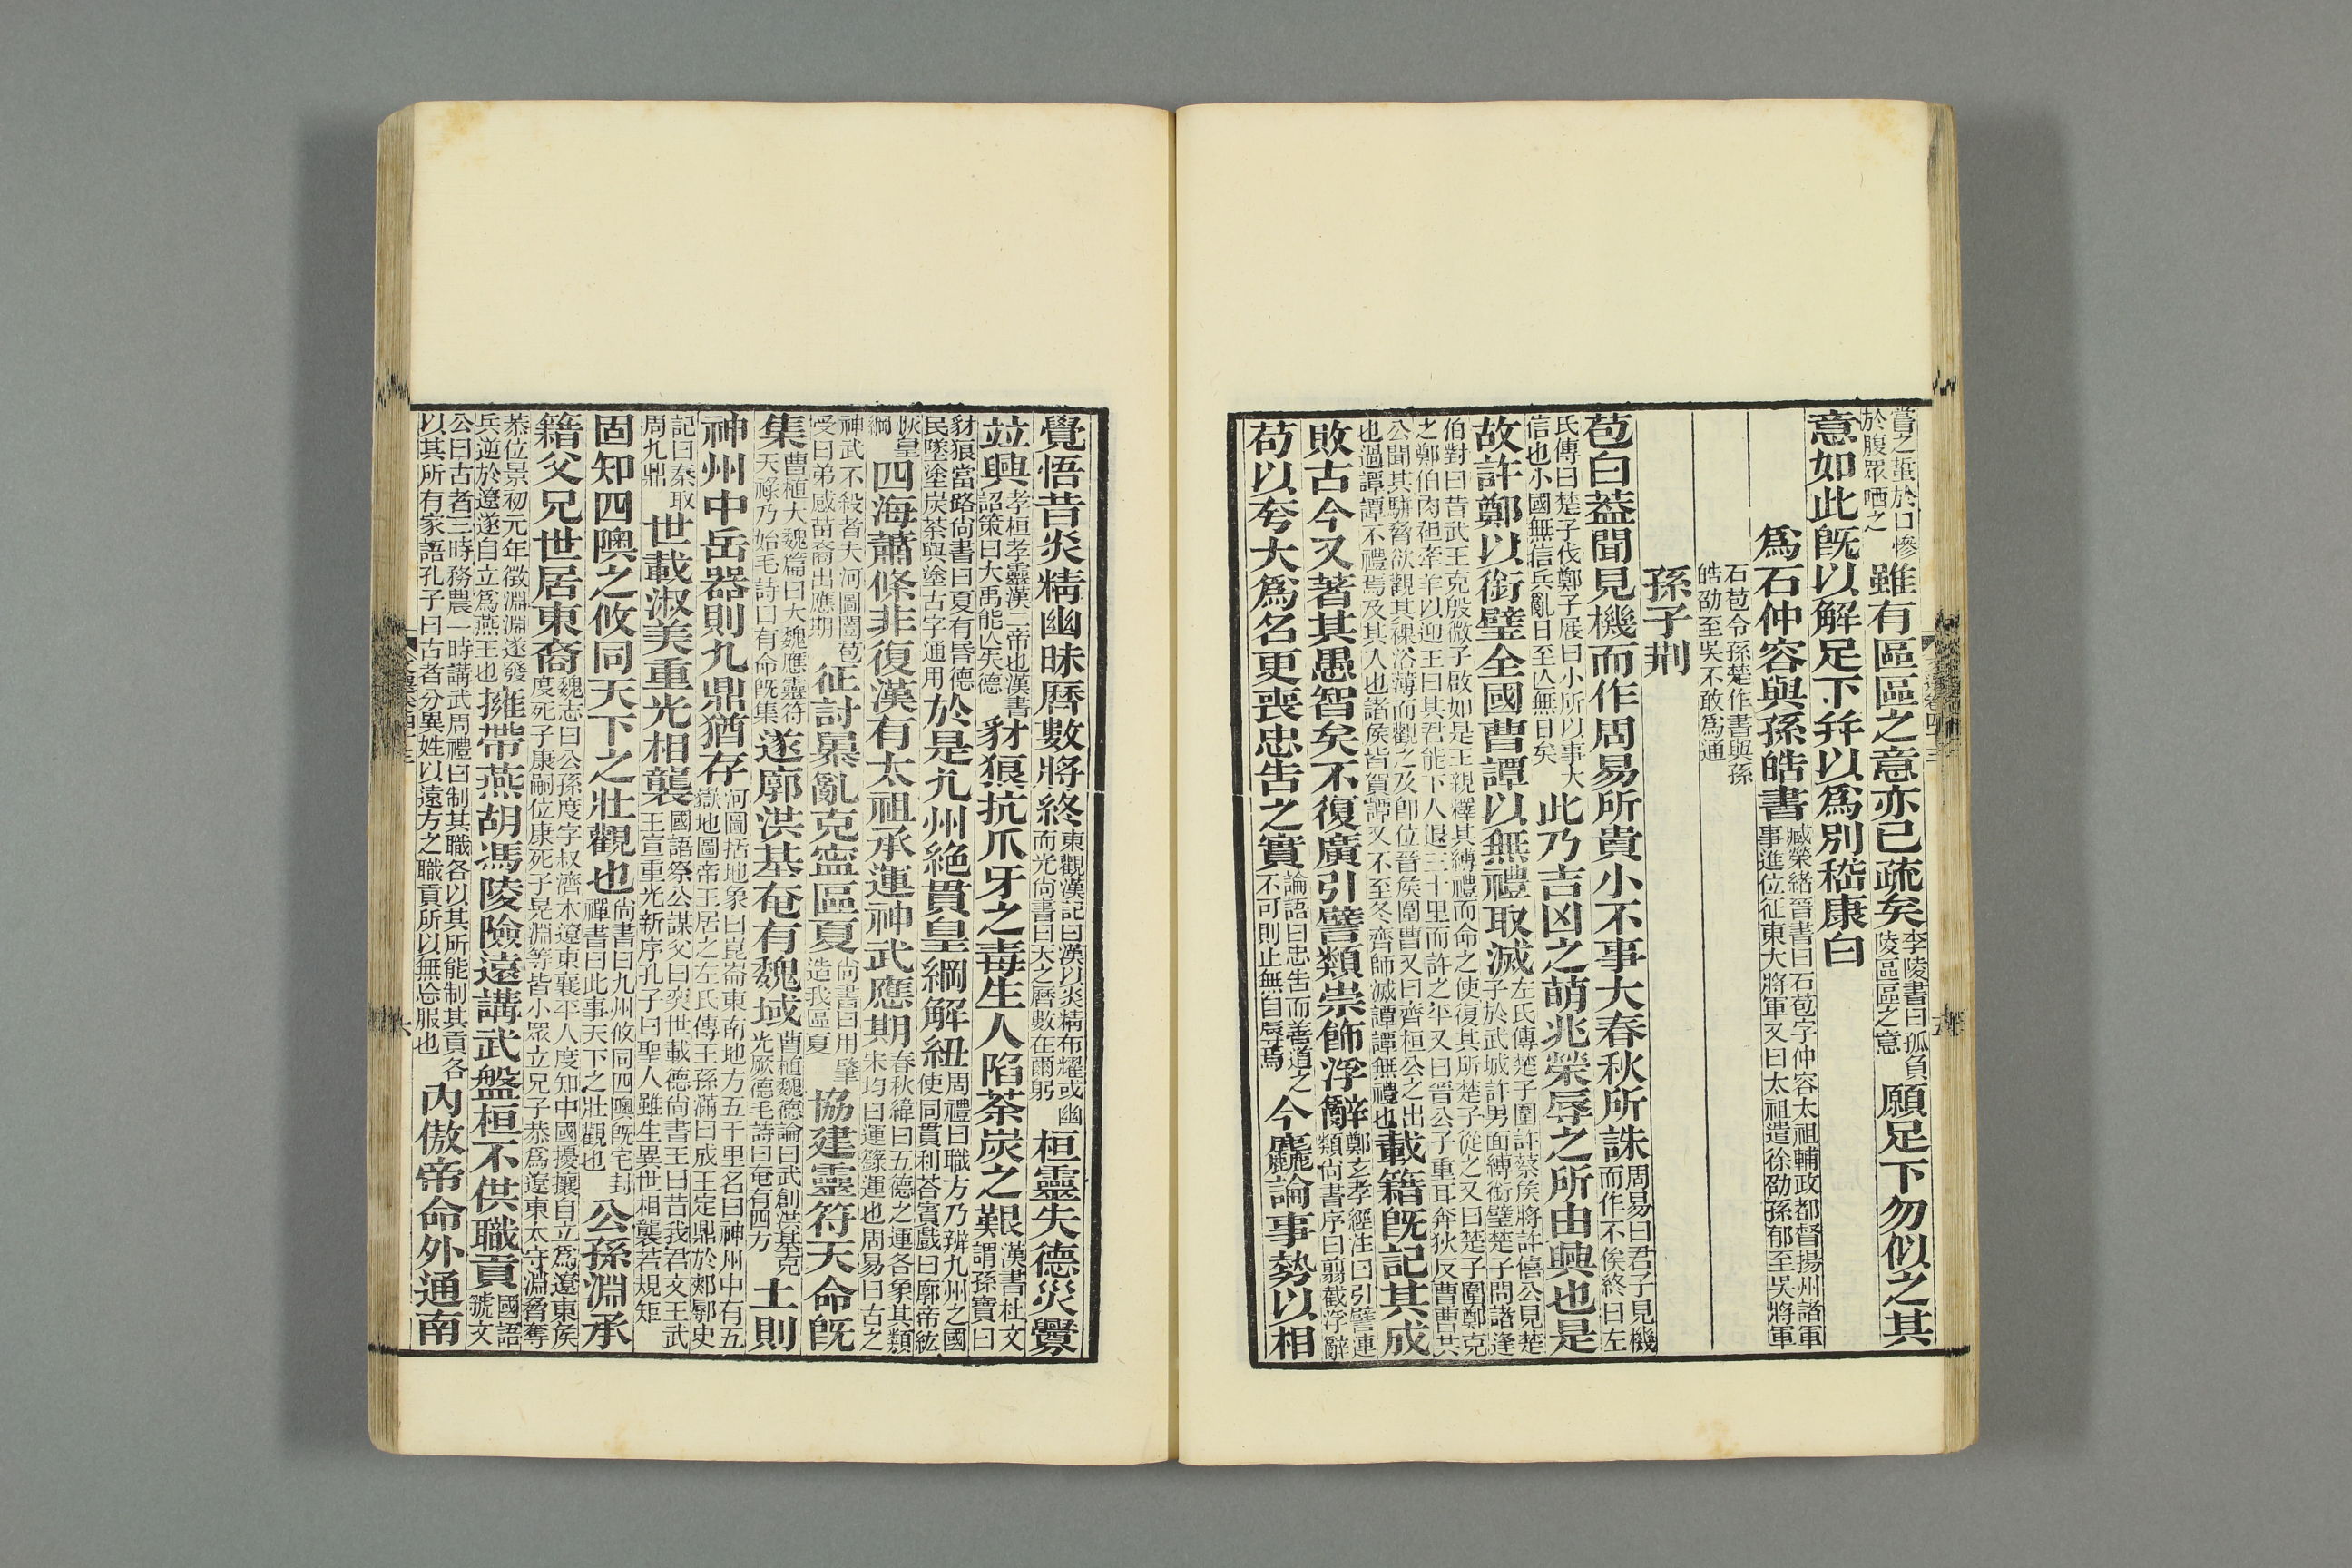 嘗之蜇於口慘於腹眾哂之雖有區區之意亦已疏矣李陵書曰孤負陵區區之意願足下勿似之其
意如此旣以解足下并以爲別嵇康白
爲石仲容與孫皓書臧榮緒晉書曰石苞字仲容太祖輔政都督揚州諸軍事進位征東大將軍又曰太祖遣徐劭孫郁至吳將軍
石苞令孫楚作書與孫皓劭至吳不敢爲通
孫子荆
苞白蓋聞見機而作周易所貴小不事大春秋所誅周易曰君子見機而作不俟終日左
氏傳曰楚子伐鄭子展曰小所以事大信也小國無信兵亂日至亾無日矣此乃吉凶之萌兆榮辱之所由興也是
故許鄭以銜璧全國曹譚以無禮取滅左氏傳楚子圍許蔡侯將許僖公見楚子於武城許男面縛銜璧楚子問諸逢
伯對曰昔武王克殷微子啟如是王親釋其縛禮而命之使復其所楚子從之又曰楚子圍鄭克之鄭伯肉袒牽羊以迎王曰其君能下人退三十里而許之平又曰晉公子重耳奔狄反曹曹共
公聞其駢脅欲觀其裸浴薄而觀之及卽位晉侯圍曹又曰齊桓公之出也過譚譚不禮焉及其入也諸侯皆賀譚又不至冬齊師滅譚譚無禮也載籍旣記其成
敗古今又著其愚智矣不復廣引譬類崇飾浮辭鄭玄孝經注曰引譬連類尙書序曰翦截浮辭
苟以夸大爲名更喪忠告之實論語曰忠告而善道之不可則止無自辱焉今麤論事勢以相
覺悟昔炎精幽昧曆數將終東觀漢記曰漢以炎精布耀或幽而光尙書曰天之曆數在爾躬桓靈失德災釁
竝興孝桓孝靈漢二帝也漢書詔策曰大禹能亾失德豺狼抗爪牙之毒生人陷荼炭之艱漢書杜文謂孫寶曰
豺狼當路尙書曰夏有昏德民墜塗炭荼與塗古字通用於是九州絕貫皇綱解紐周禮曰職方乃辨九州之國使同貫利荅賓戲曰廓帝紘
恢皇綱四海蕭條非復漢有太祖承運神武應期春秋緯曰五德之運各象其類宋均曰運籙運也周易曰古之
神武不殺者夫河圖闓苞受曰弟感苗裔出應期征討暴亂克寧區夏尙書曰用肇造我區夏協建靈符天命旣
集曹植大魏篇曰大魏應靈符天祿乃始毛詩曰有命旣集遂廓洪基奄有魏域曹植魏德論曰武創洪基克光厥德毛詩曰奄有四方土則
神州中岳器則九鼎猶存河圖括地象曰崑崙東南地方五千里名曰神州中有五嶽地圖帝王居之左氏傳王孫滿曰成王定鼎於郟鄏史
記曰秦取周九鼎世載淑美重光相襲國語祭公謀父曰奕世載德尙書王曰昔我君文王武王宣重光新序孔子曰聖人雖生異世相襲若規矩
固知四隩之攸同天下之壯觀也尙書曰九州攸同四隩旣宅封禪書曰此事天下之壯觀也公孫淵承
籍父兄世居東裔魏志曰公孫度字叔濟本遼東襄平人度知中國擾攘自立爲遼東侯度死子康嗣位康死子晃淵等皆小眾立兄子恭爲遼東太守淵脅奪
恭位景初元年徵淵淵遂發兵逆於遼遂自立爲燕王也擁帶燕胡馮陵險遠講武盤桓不供職貢國語虢文
公曰古者三時務農一時講武周禮曰制其職各以其所能制其貢各以其所有家語孔子曰古者分異姓以遠方之職貢所以無忘服也內傲帝命外通南